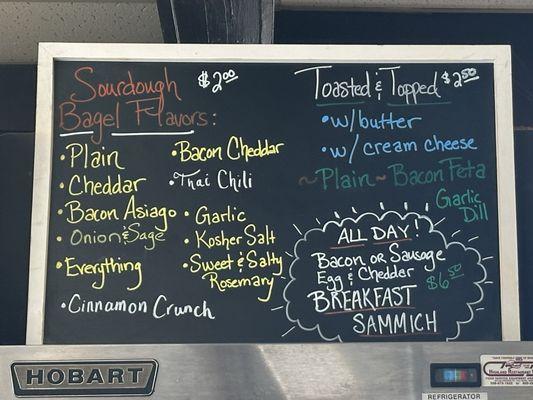 Sourdough $2.00
Bagel Flavors:
• Plain
• Cheddar
• Bacon Asiago
• Onion & Sage
• Everything
• Cinnamon Crunch
• Bacon Cheddar
• Thai Chili
• Garlic
• Kosher Salt
• Sweet & Salty
Rosemary
Toasted & Topped $2.50
• w/butter
• w/ cream cheese
~Plain~ Bacon Feta
Garlic
Dill
ALL DAY!
Bacon or Sausage
Egg & Cheddar
$6.50
BREAKFAST
SAMMICH
HOBART
REFRIGERATOR